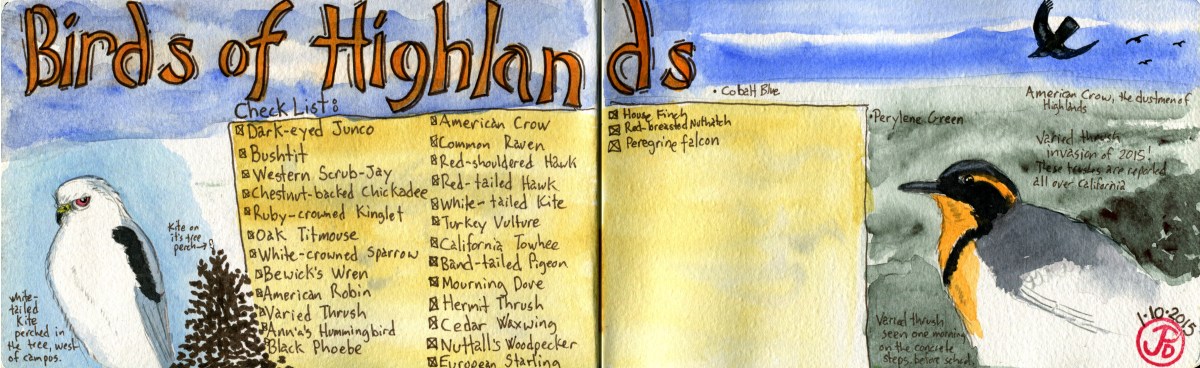 Birds of Highlands
Check List:
Dark-eyed Junco
Bushtit
Western Scrub-Jay
Chestnut-backed Chickadee
Ruby-crowned Kinglet
Oak Titmouse
White-crowned Sparrow
Bewick's Wren
American Robin
Varied Thrush
Anna's Hummingbird
Black Phoebe
American Crow
Common Raven
Red-shouldered Hawk
Red-tailed Hawk
White-tailed Kite
Turkey Vulture
California Towhee
Band-tailed Pigeon
Mourning Dove
Hermit Thrush
Cedar Waxwing
Nuttall's Woodpecker
European Starling
House Finch
Red-breasted Nuthatch
Peregrine falcon
Kite on
it's tree
perch→
white-
tailed
Kite
perched in
the tree, west
of campus.
• Cobalt Blue
• Perylene Green
American Crow, the dustmen of
Highlands
Varied thrush
invasion of 2015!
These are reported
all over California
Varied thrush
seen one morning
on the concrete
steps, before school.
1·10·2015
JPD